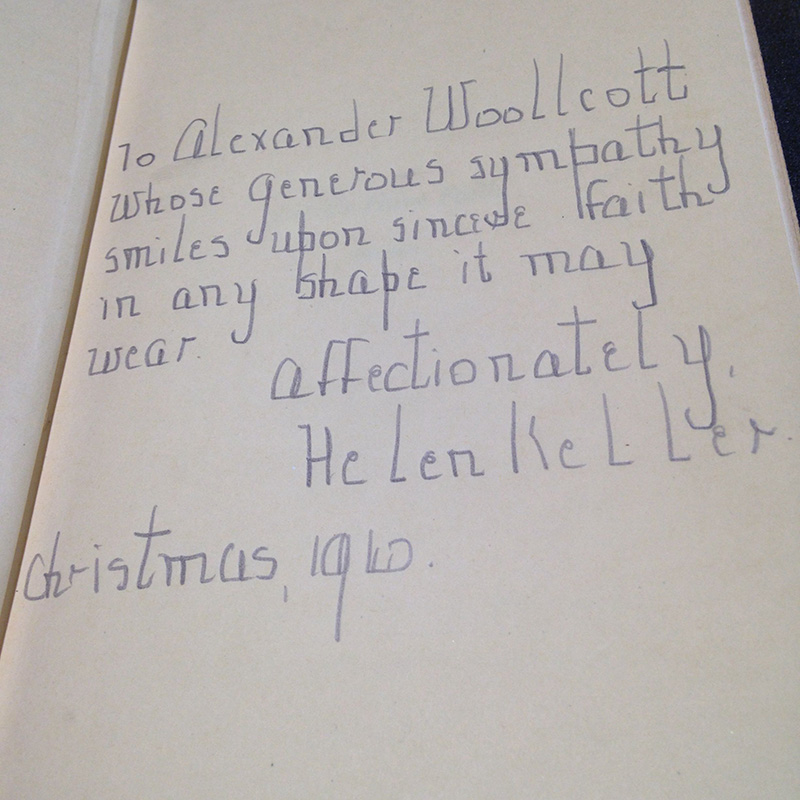 To Alexander Woollcott
whose generous sympathy
smiles upon sincere faith
in any shape it may
wear.
affectionately,
Helen Keller.
christmas, 1940.